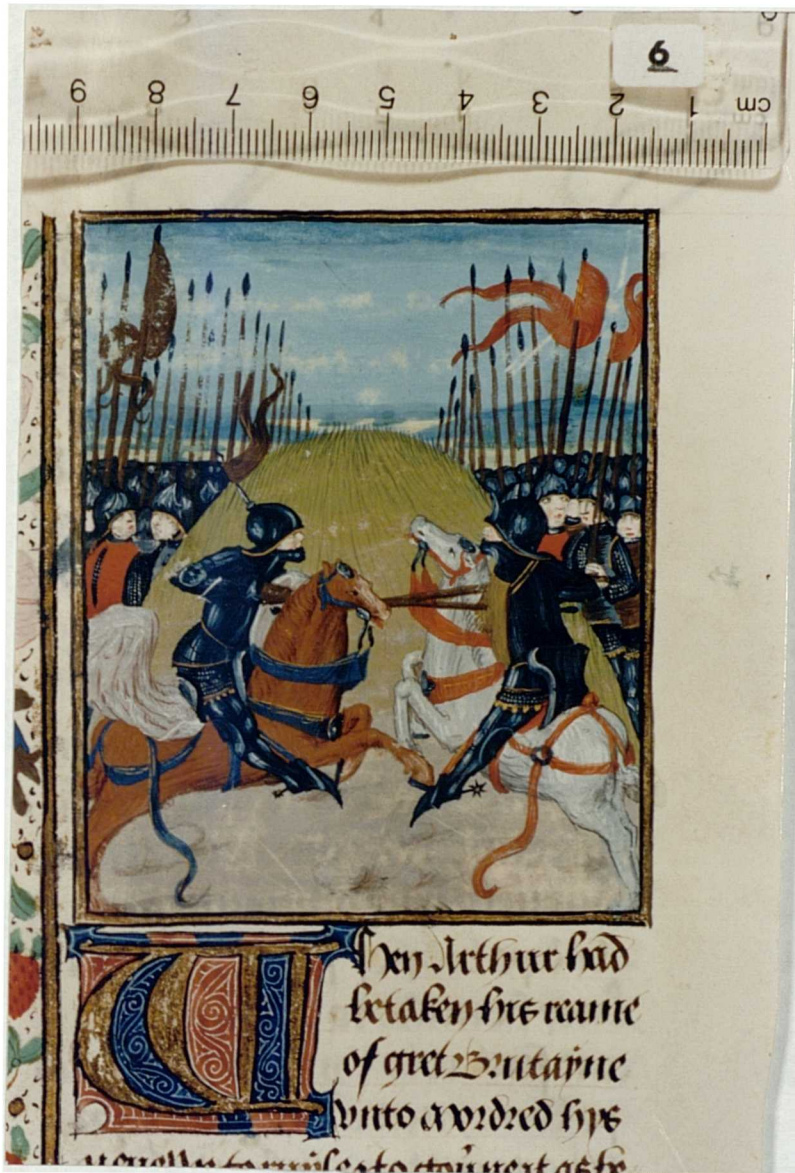 6
9 8 7 6 5 4 3 2 1 cm
When Arthur had
betaken his reame
of gret Brutayne
vnto Mordred hys